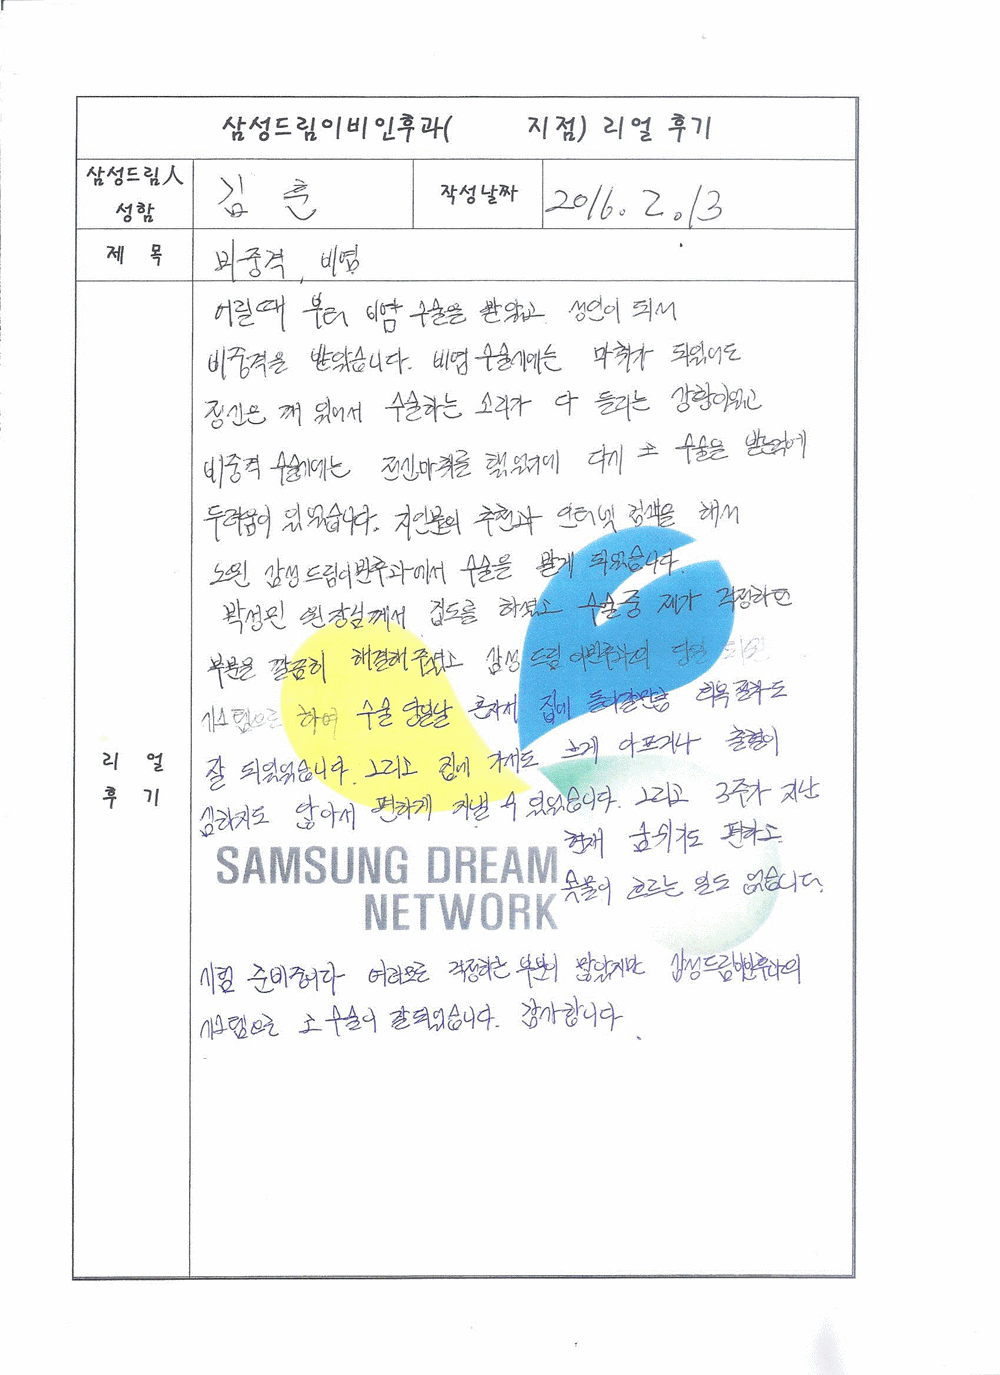 삼성드림이비인후과( 지점) 리얼 후기
삼성드림人 성함
김훈
작성날짜
2016. 2. 13
제 목
비중격, 비염
리 얼 후 기
어릴때 부터 비염 수술을 받았고 성인이 되서
비중격을 받았습니다. 비염 수술시에는 마취가 되있어도
정신은 깨 있어서 수술하는 소리가 다 들리는 상황이였고
비중격 수술시에는 전신마취를 했었기에 다시 또 수술을 받는것에
두려움이 있었습니다. 지인분의 추천과 인터넷 검색을 해서
노원 삼성드림이비인후과에서 수술을 받게 되었습니다.
박성민 원장님께서 집도를 하셨고 수술중 제가 걱정하던
부분을 깔끔히 해결해 주셨고 삼성 드림 이비인후과의 당일 퇴원
시스템으로 하여 수술 당일날 혼자서 집에 돌아갈만큼 회복 정도도
잘 되있었습니다. 그리고 집에 가서도 크게 아프거나 출혈이
심하지도 않아서 편하게 지낼 수 있었습니다. 그리고 3주가 지난
현재 숨쉬기도 편하고
콧물이 흐르는 일도 없습니다.
SAMSUNG DREAM
NETWORK
시험 준비중이라 여러모로 걱정하는 부분이 많았지만 삼성드림이비인후과의
시스템으로 또 수술이 잘되었습니다. 감사합니다.